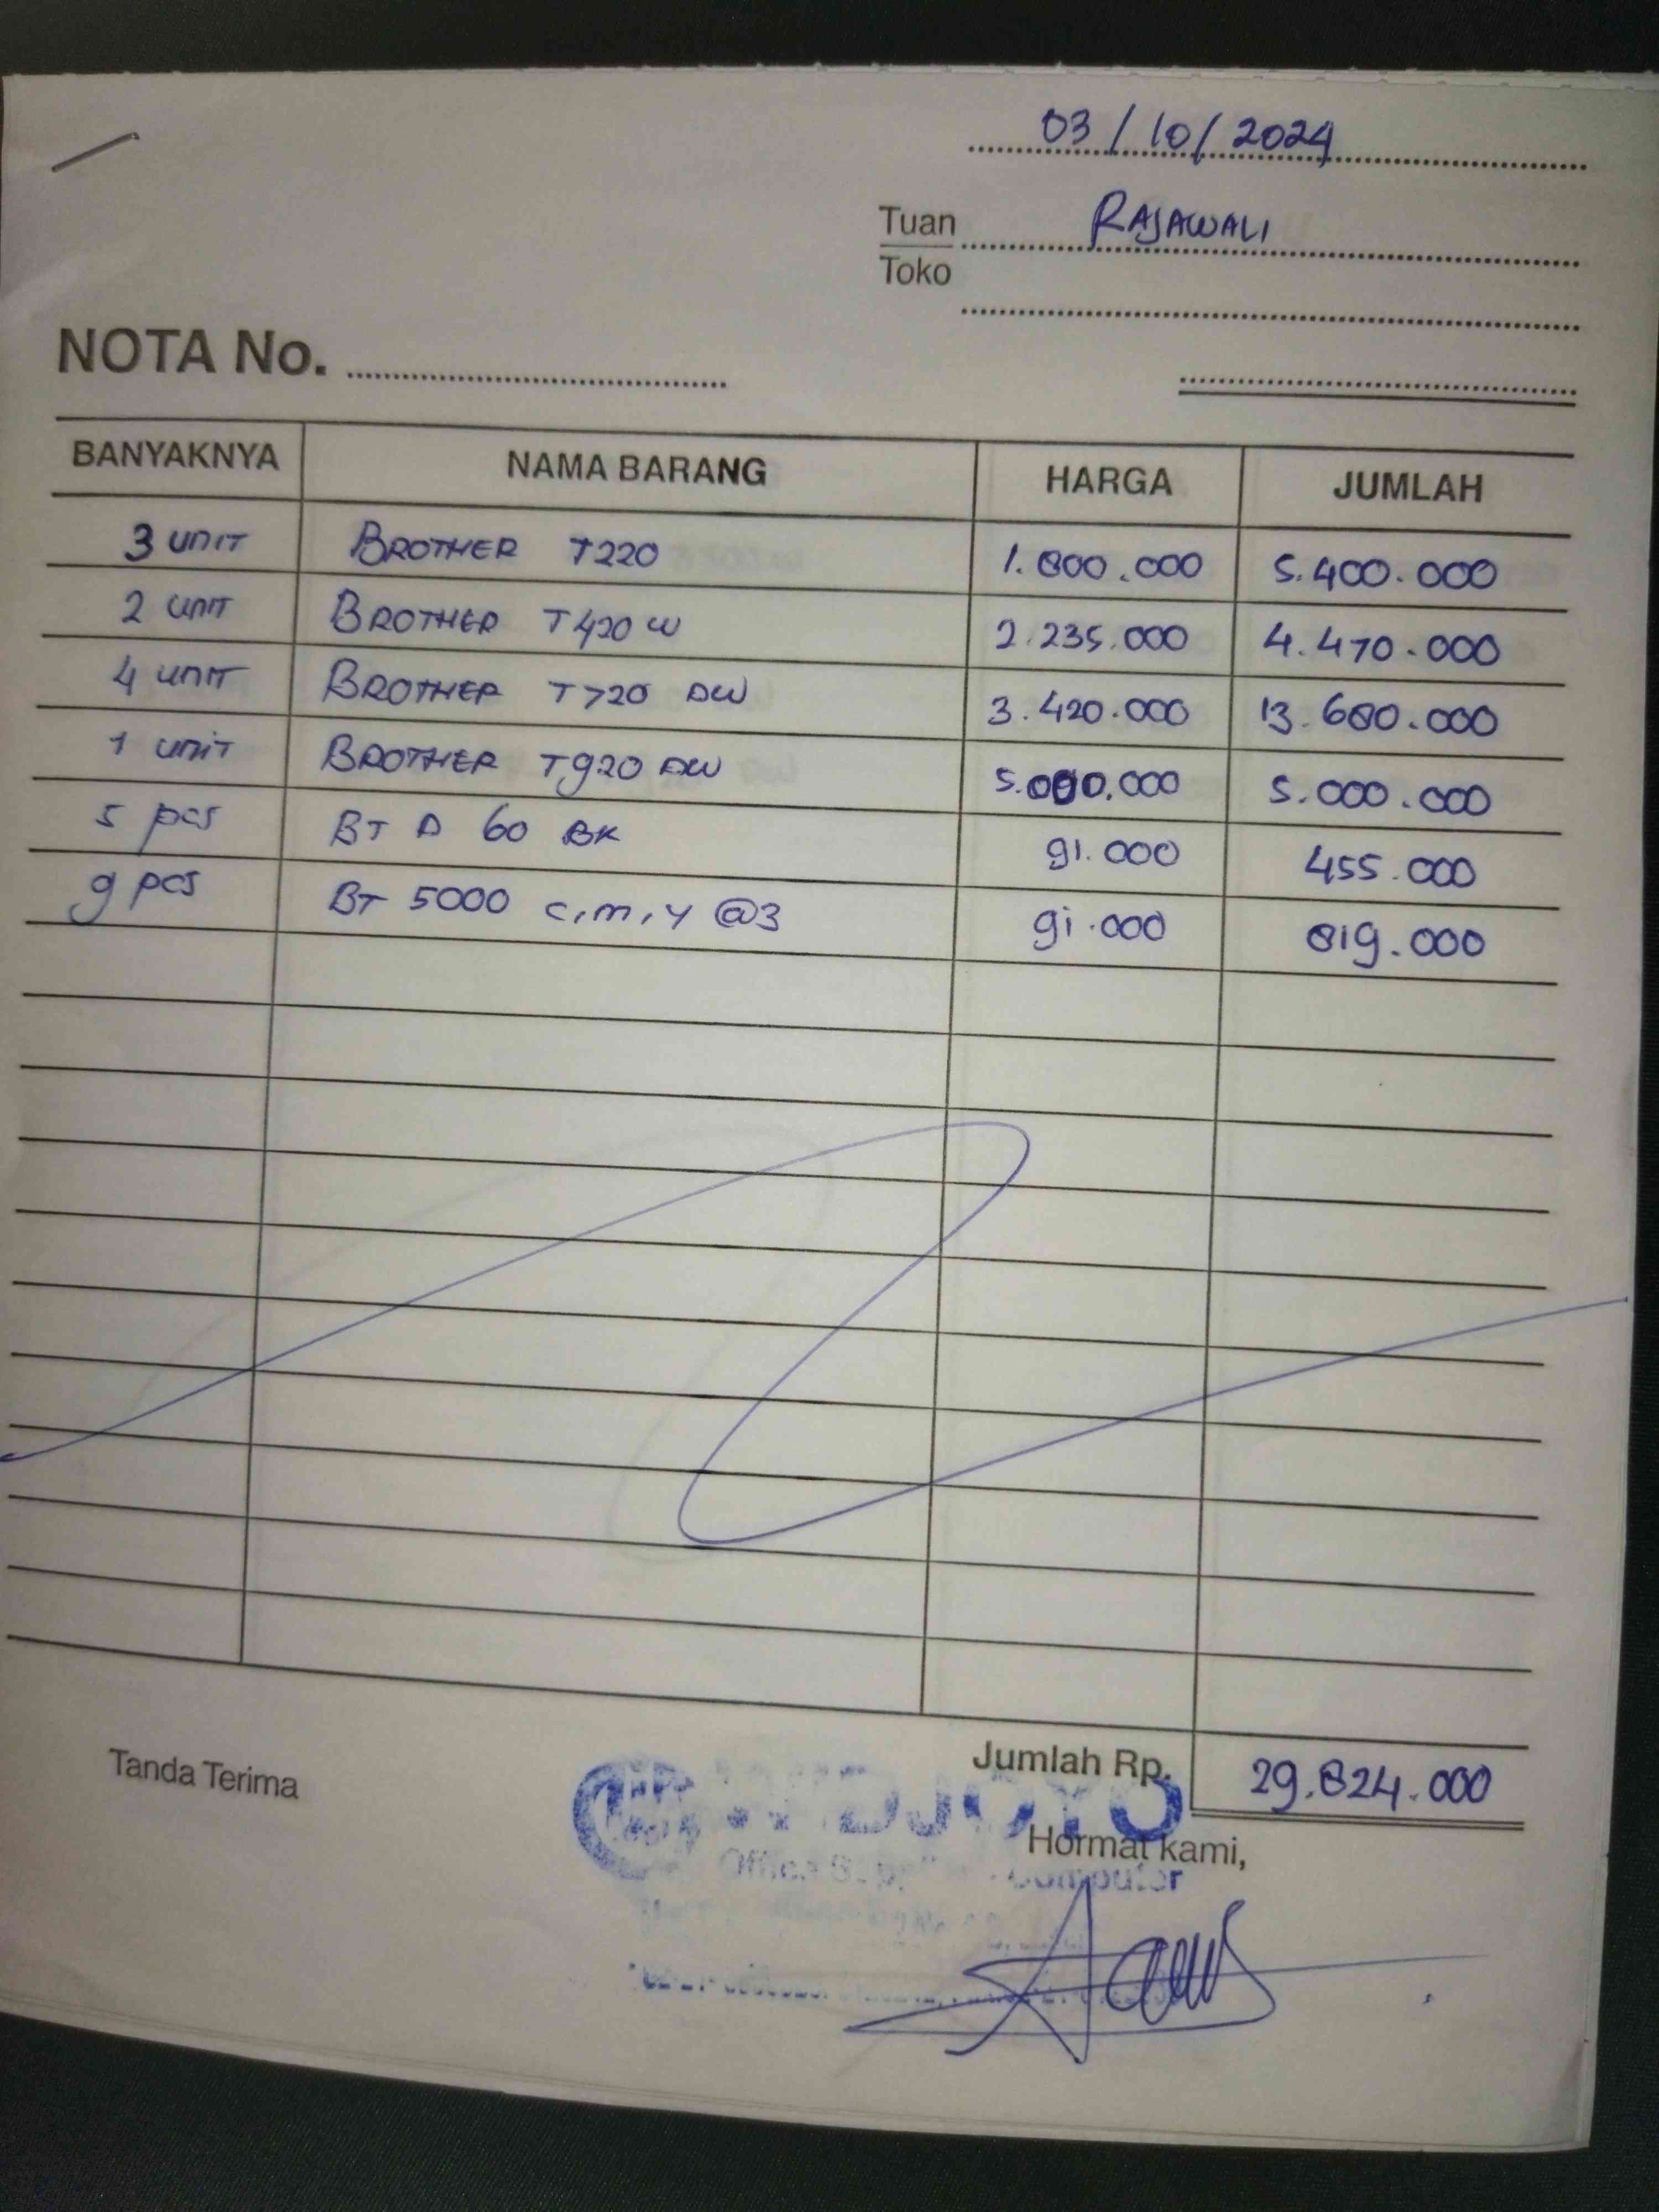 03/10/2024
Tuan RAJAWALI
Toko
NOTA No.
BANYAKNYA NAMA BARANG HARGA JUMLAH
3 UNIT BROTHER T220 1.800.000 5.400.000
2 UNIT BROTHER T420 W 2.235.000 4.470.000
4 UNIT BROTHER T720 DW 3.420.000 13.680.000
1 UNIT BROTHER T920 DW 5.000.000 5.000.000
5 pcs BT D 60 BK 91.000 455.000
9 pcs BT 5000 C,M,Y @3 91.000 819.000
Tanda Terima Jumlah Rp. 29.824.000
Hormat kami,
Office Computer